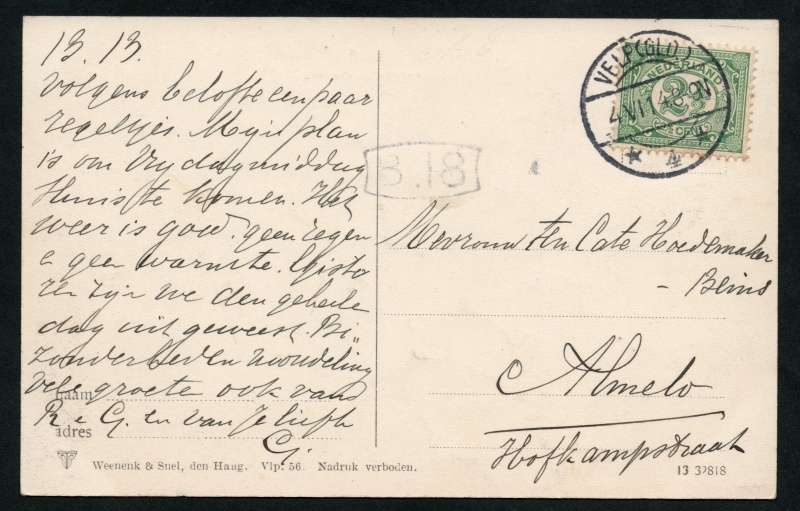 13.13.
Volgens belofte een paar
regeltjes. Mijn plan
is om Vrijdagmiddag
thuis te komen. Het
weer is goed. geen regen
e geen warmte. Giste
ren zijn we den geheele
dag uit geweest. Bi-
zonderheden mondeling
Vele groete ook van
R e G. en van je liefh
G.
naam
adres
Weenenk & Snel, den Haag. Vlp. 56. Nadruk verboden.
VELP (GLD.)
4 VII 14 8-9N
4
NEDERLAND
2½
CENT
B.18
Mevrouw ten Cate Hoedemaker
- Beins
Almelo
Hofkampstraat
13 32818